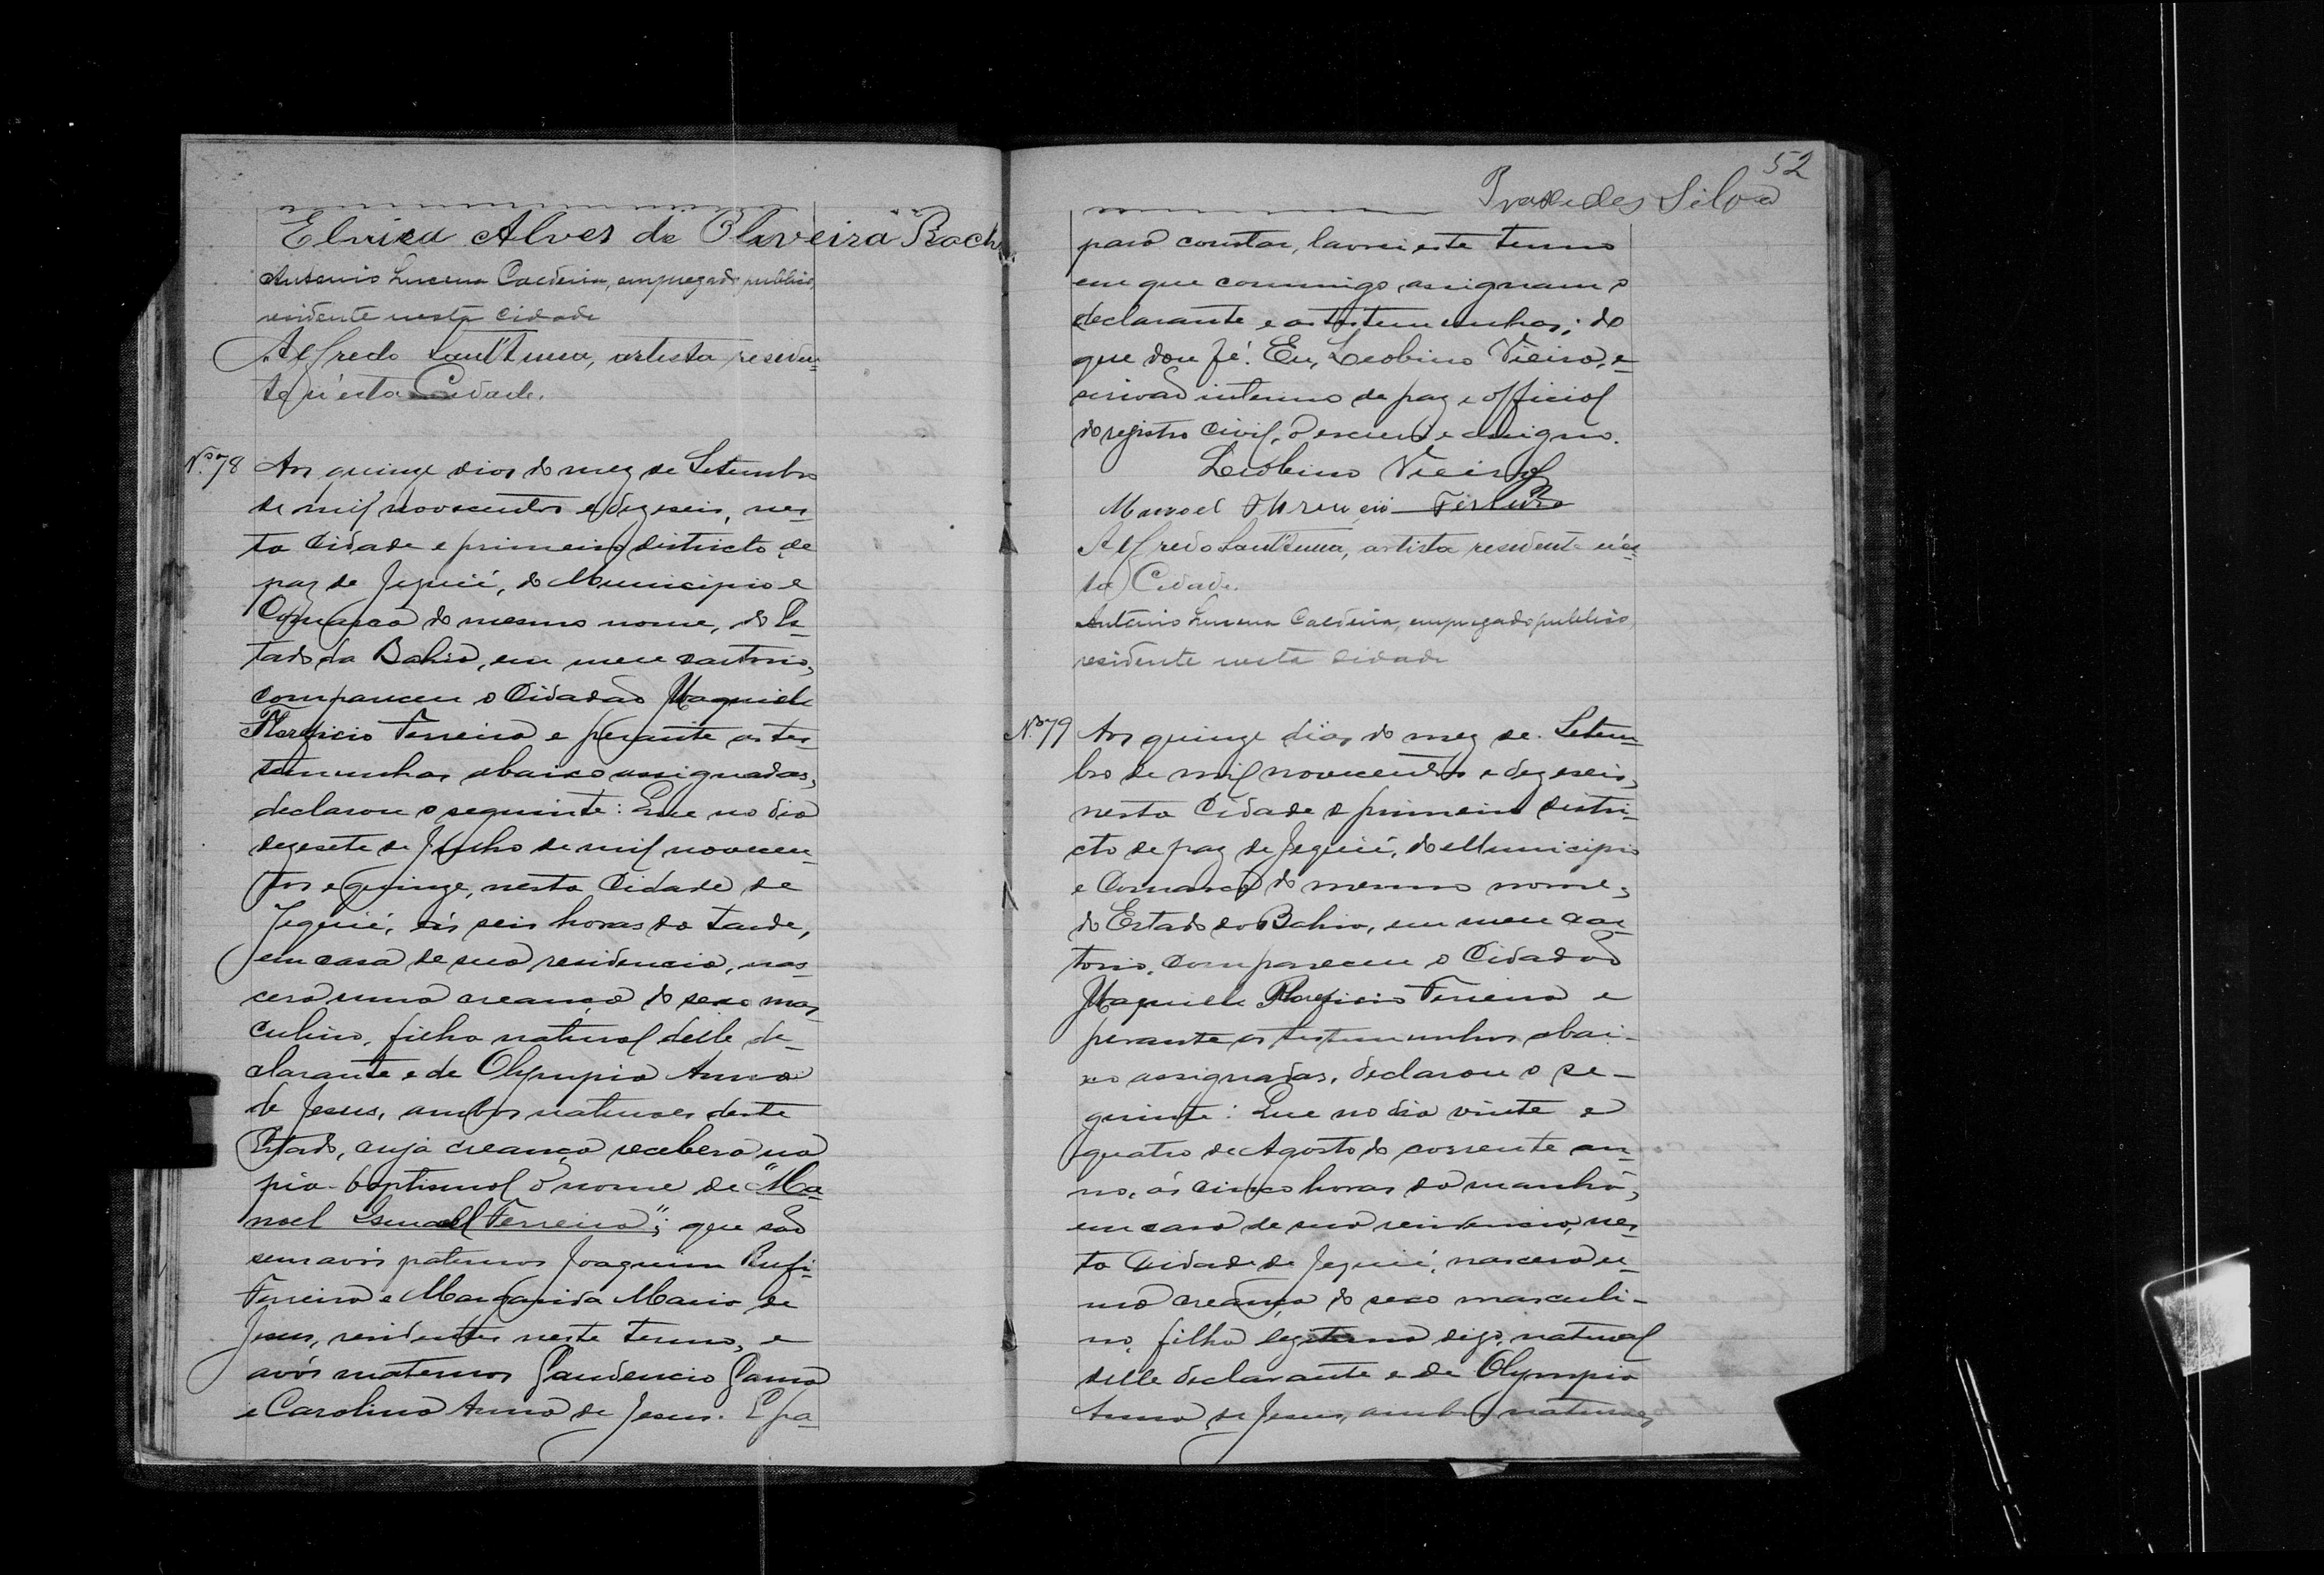 Elvira Alves de Oliveira Roch
Antonio Lucena Caldeira, empregado publico,
residente nesta cidade
Alfredo Sant'Anna, artista residen-
te n'esta Cidade.
N.º 78 Aos quinze dias do mez de Setembro
de mil novecentos e dezeseis, nes-
ta Cidade e primeiro districto de
paz de Jequié, do Municipio e
Comarca do mesmo nome, do Es-
tado da Bahia, em meu cartorio,
compareceu o Cidadão
Ferreira e perante as tes-
temunhas abaixo assignadas,
declarou o seguinte: Que no dia
dezesete de Junho de mil novecen-
tos e quinze, nesta Cidade de
Jequié, ás seis horas da tarde,
em casa de sua residencia, nas-
cera uma creança do sexo mas-
culino, filha natural delle de-
clarante e de Olympia Anna
de Jesus, ambos naturaes deste
Estado, cuja creança recebera na
pia baptismal o nome de "Ma-
noel Ismael Ferreira"; que são
seus avós paternos Joaquim Rufi-
Ferreira e Margarida Maria de
Jesus, residentes neste termo, e
avós maternos Gaudencio Gama
e Carolina Anna de Jesus. E pa-
52
Praxedes Silva
para constar, lavrei este termo
em que commigo assignam o
declarante e as testemunhas; do
que dou fé. Eu, Leobino Vieira, e-
scrivão interino de paz e official
do registro Civil, o escrevi e assigno.
Leobino Vieira
Manoel Ferreira
Alfredo Sant'Anna, artista residente n'es-
ta Cidade.
Antonio Lucena Caldeira, empregado publico,
residente nesta cidade
N.º 79 Aos quinze dias do mez de Setem-
bro de mil novecentos e dezeseis,
nesta Cidade e primeiro distri-
cto de paz de Jequié, do Municipio
e Comarca do mesmo nome,
do Estado da Bahia, em meu car-
torio, compareceu o Cidadão
Ferreira e
perante as testemunhas abai-
xo assignadas, declarou o se-
guinte: Que no dia vinte e
quatro de Agosto do corrente an-
no, ás cinco horas da manhã,
em casa de sua residencia, nes-
ta Cidade de Jequié, nascera u-
ma creança do sexo masculi-
no, filha legitima digo, natural
delle declarante e de Olympia
Anna de Jesus, ambos naturaes